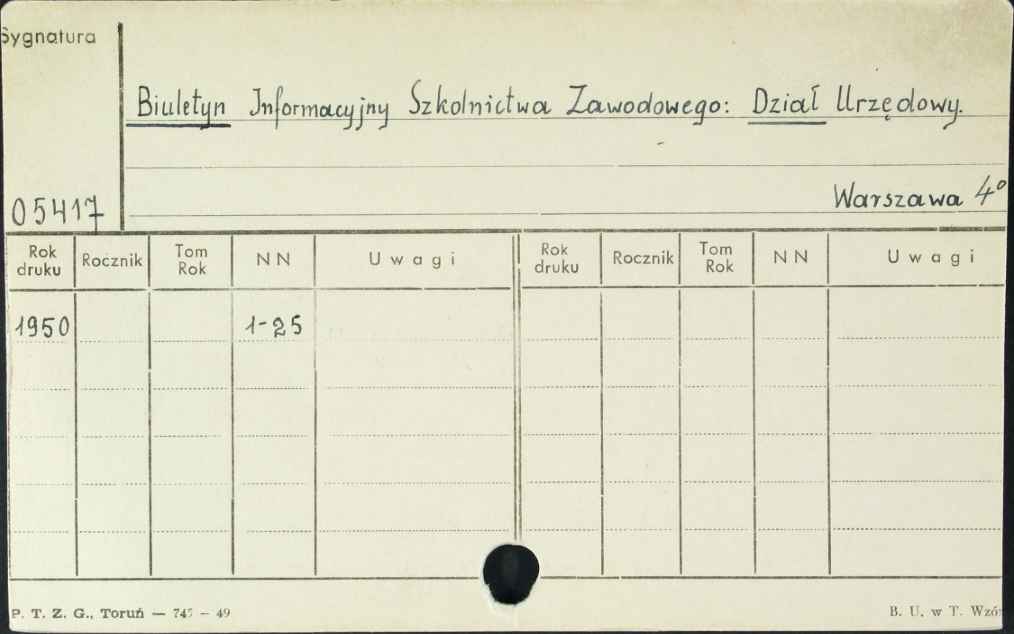 Sygnatura
Biuletyn Informacyjny Szkolnictwa Zawodowego: Dział Urzędowy.
Warszawa 4°
05417
Rok druku Rocznik Tom Rok NN Uwagi Rok druku Rocznik Tom Rok NN Uwagi
1950 1-25
P. T. Z. G., Toruń — 745 – 49 B. U. w T. Wzó